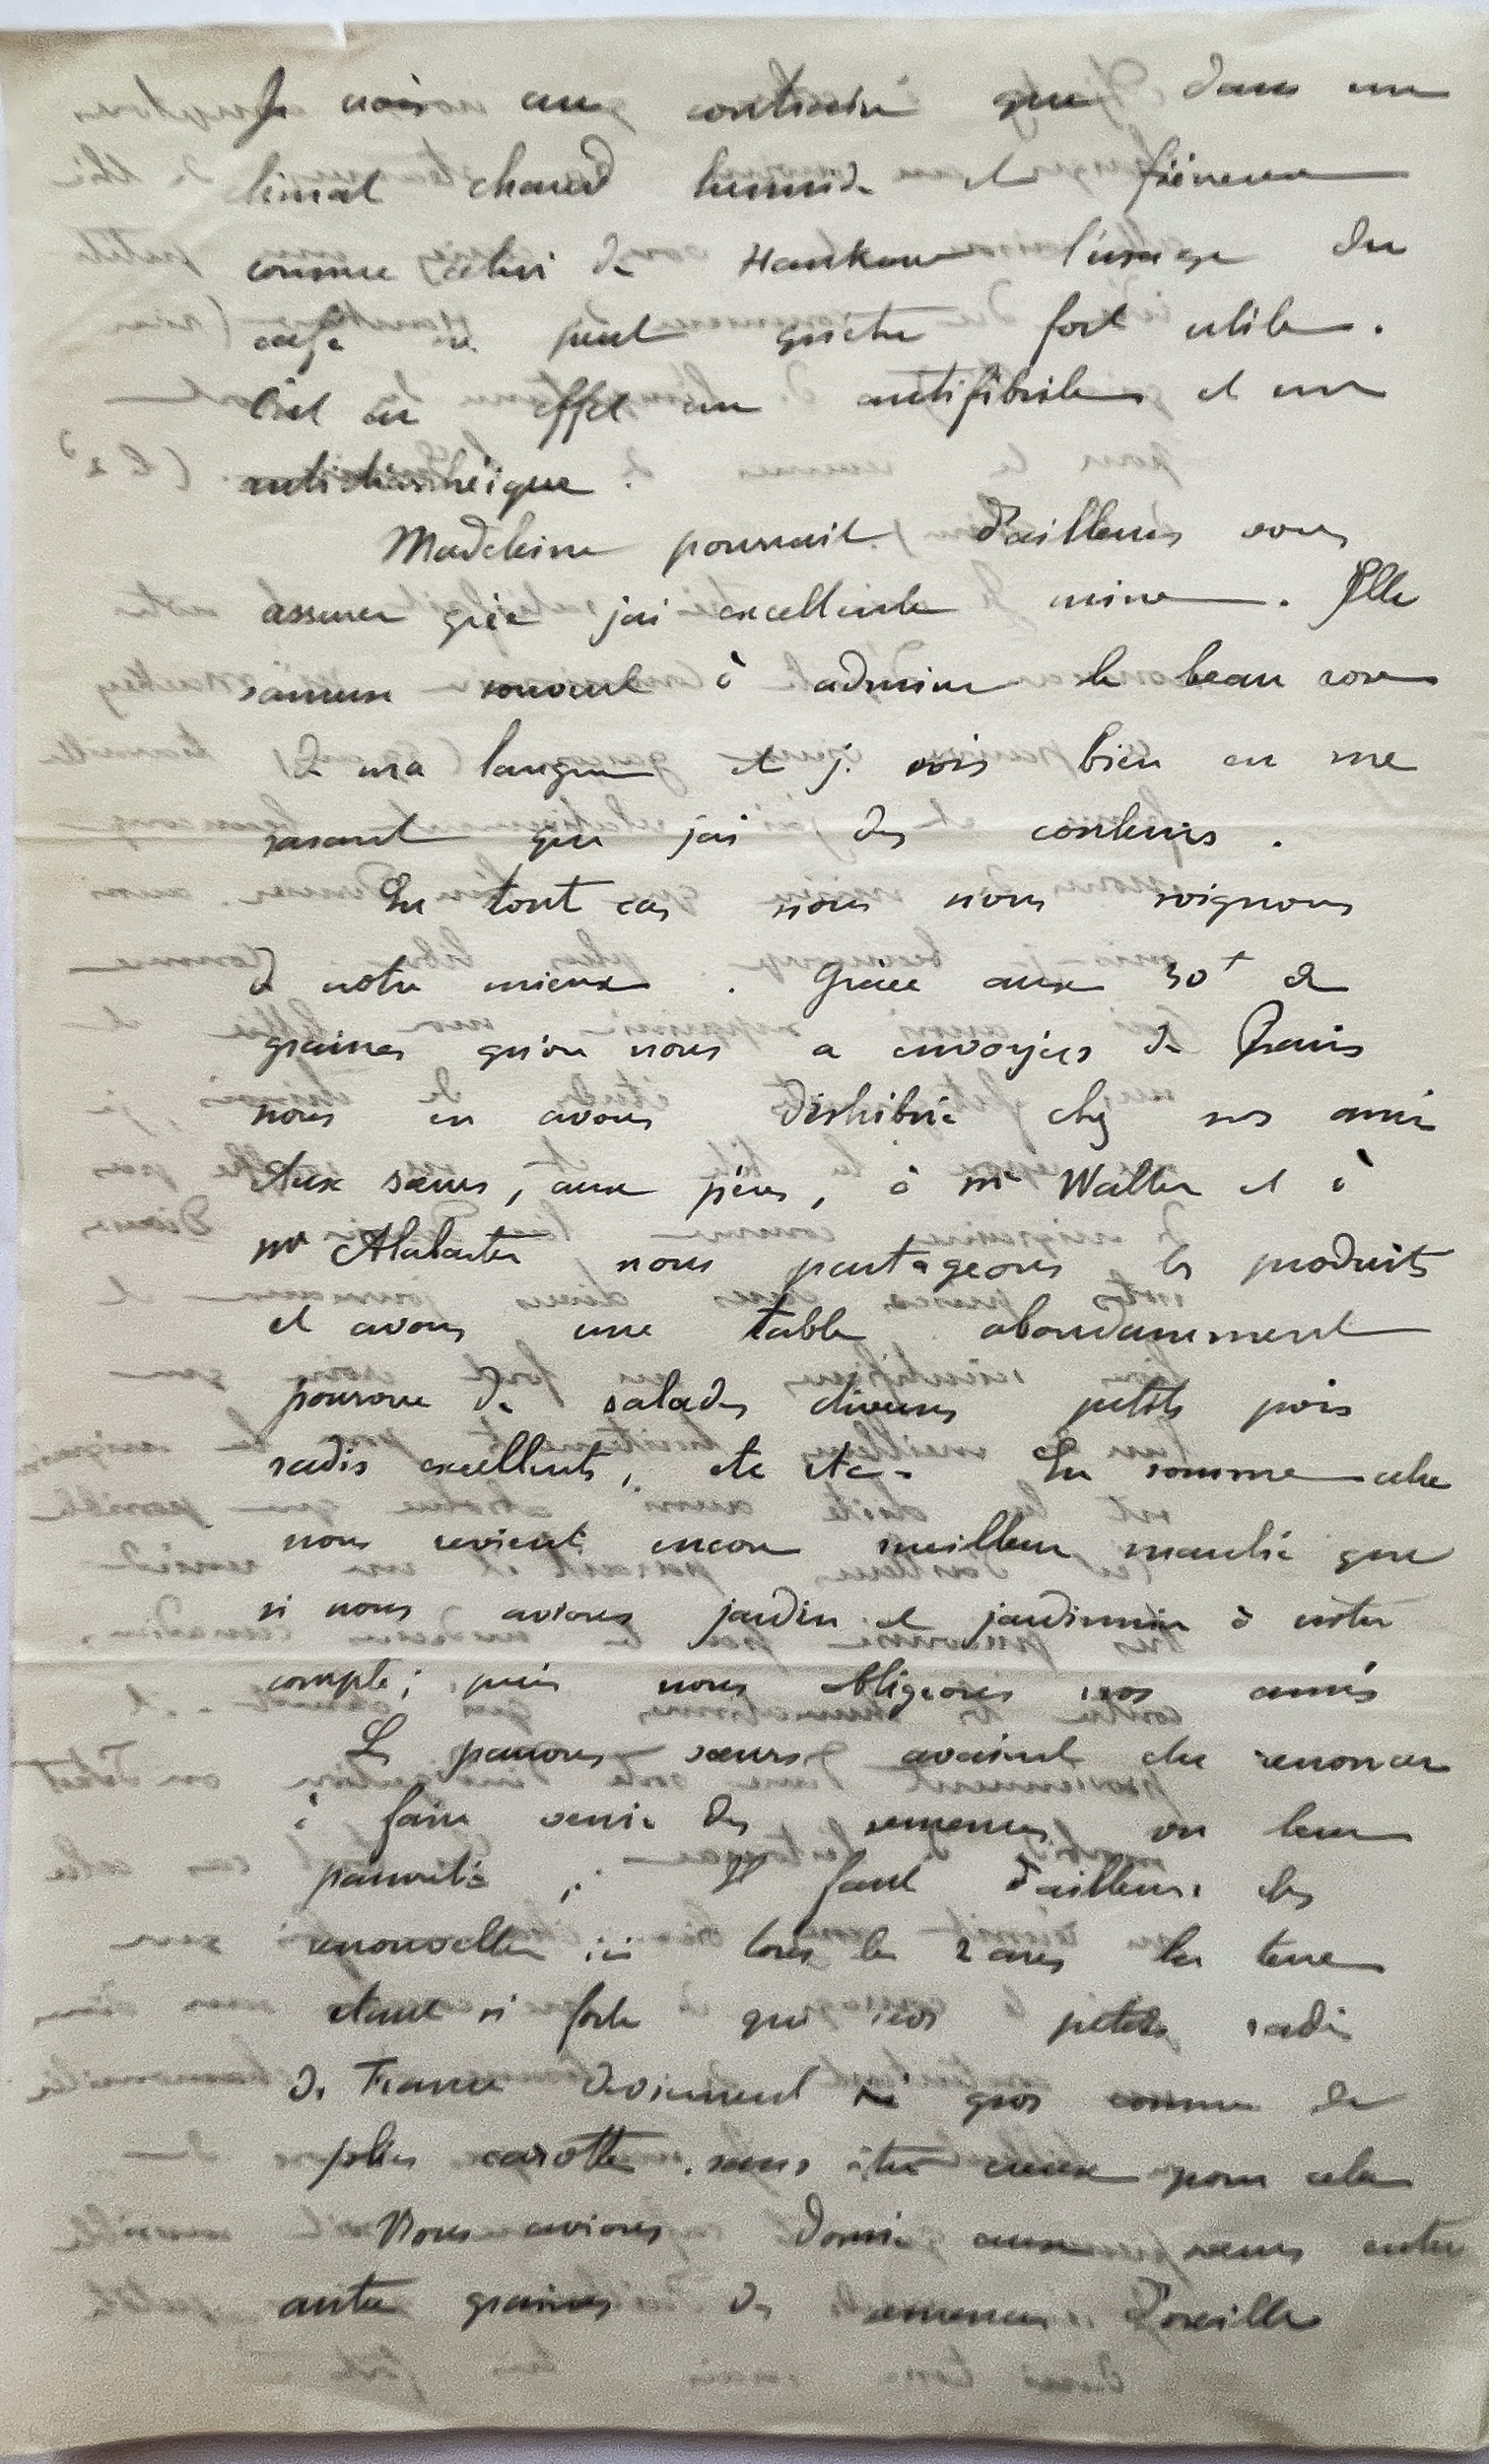 Je crois au contraire que dans un
climat chaud humide et fiévreux
comme celui de Hankow l'usage du
café ne peut qu'etre fort utile.
C'est en effet un antifébrile et un
antidiarrhéique.
Madeleine pourrait d'ailleurs vous
assurer que j'ai excellente mine. Elle
s'amuse souvent à admirer le beau rose
de ma langue et je vois bien en me
rasant que j'ai des couleurs.
En tout cas nous nous soignons
de notre mieux. Grâce aux 30f de
graines qu'on nous a envoyées de Paris
nous en avons distribué chez nos amis
Aux sœurs, aux pères, à Mr Walter et à
Mr Alabaster nous partageons les produits
et avons une table abondamment
pourvue de salades diverses petits pois
radis excellents, etc etc. En somme cela
nous revient encore meilleur marché que
si nous avions jardin et jardinier à notre
compte; puis nous obligeons nos amis
Les pauvres sœurs avaient du renoncer
à faire venir des semences vu leur
pauvreté; Il faut d'ailleurs les
renouveller ici tous les 2 ans la terre
étant si forte que nos petits radis
de France deviennent gros comme de
jolies carottes sans être creux pour cela
Nous avions donné aux sœurs entre
autres graines des semences d'oseille